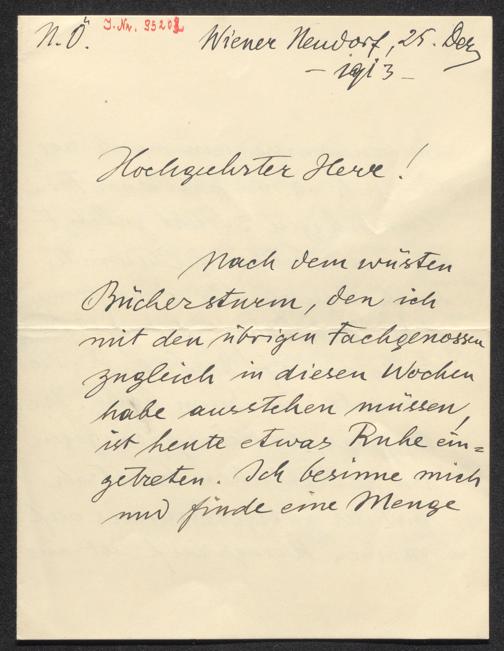 N.Ö. J.Nr. 95202 Wiener Neudorf, 25. Dez
– 1913 –
Hochgeehrter Herr!
Nach dem wüsten
Büchersturm, den ich
mit den übrigen Fachgenossen
zugleich in diesen Wochen
habe ausstehen müssen,
ist heute etwas Ruhe ein=
getreten. Ich besinne mich
und finde eine Menge